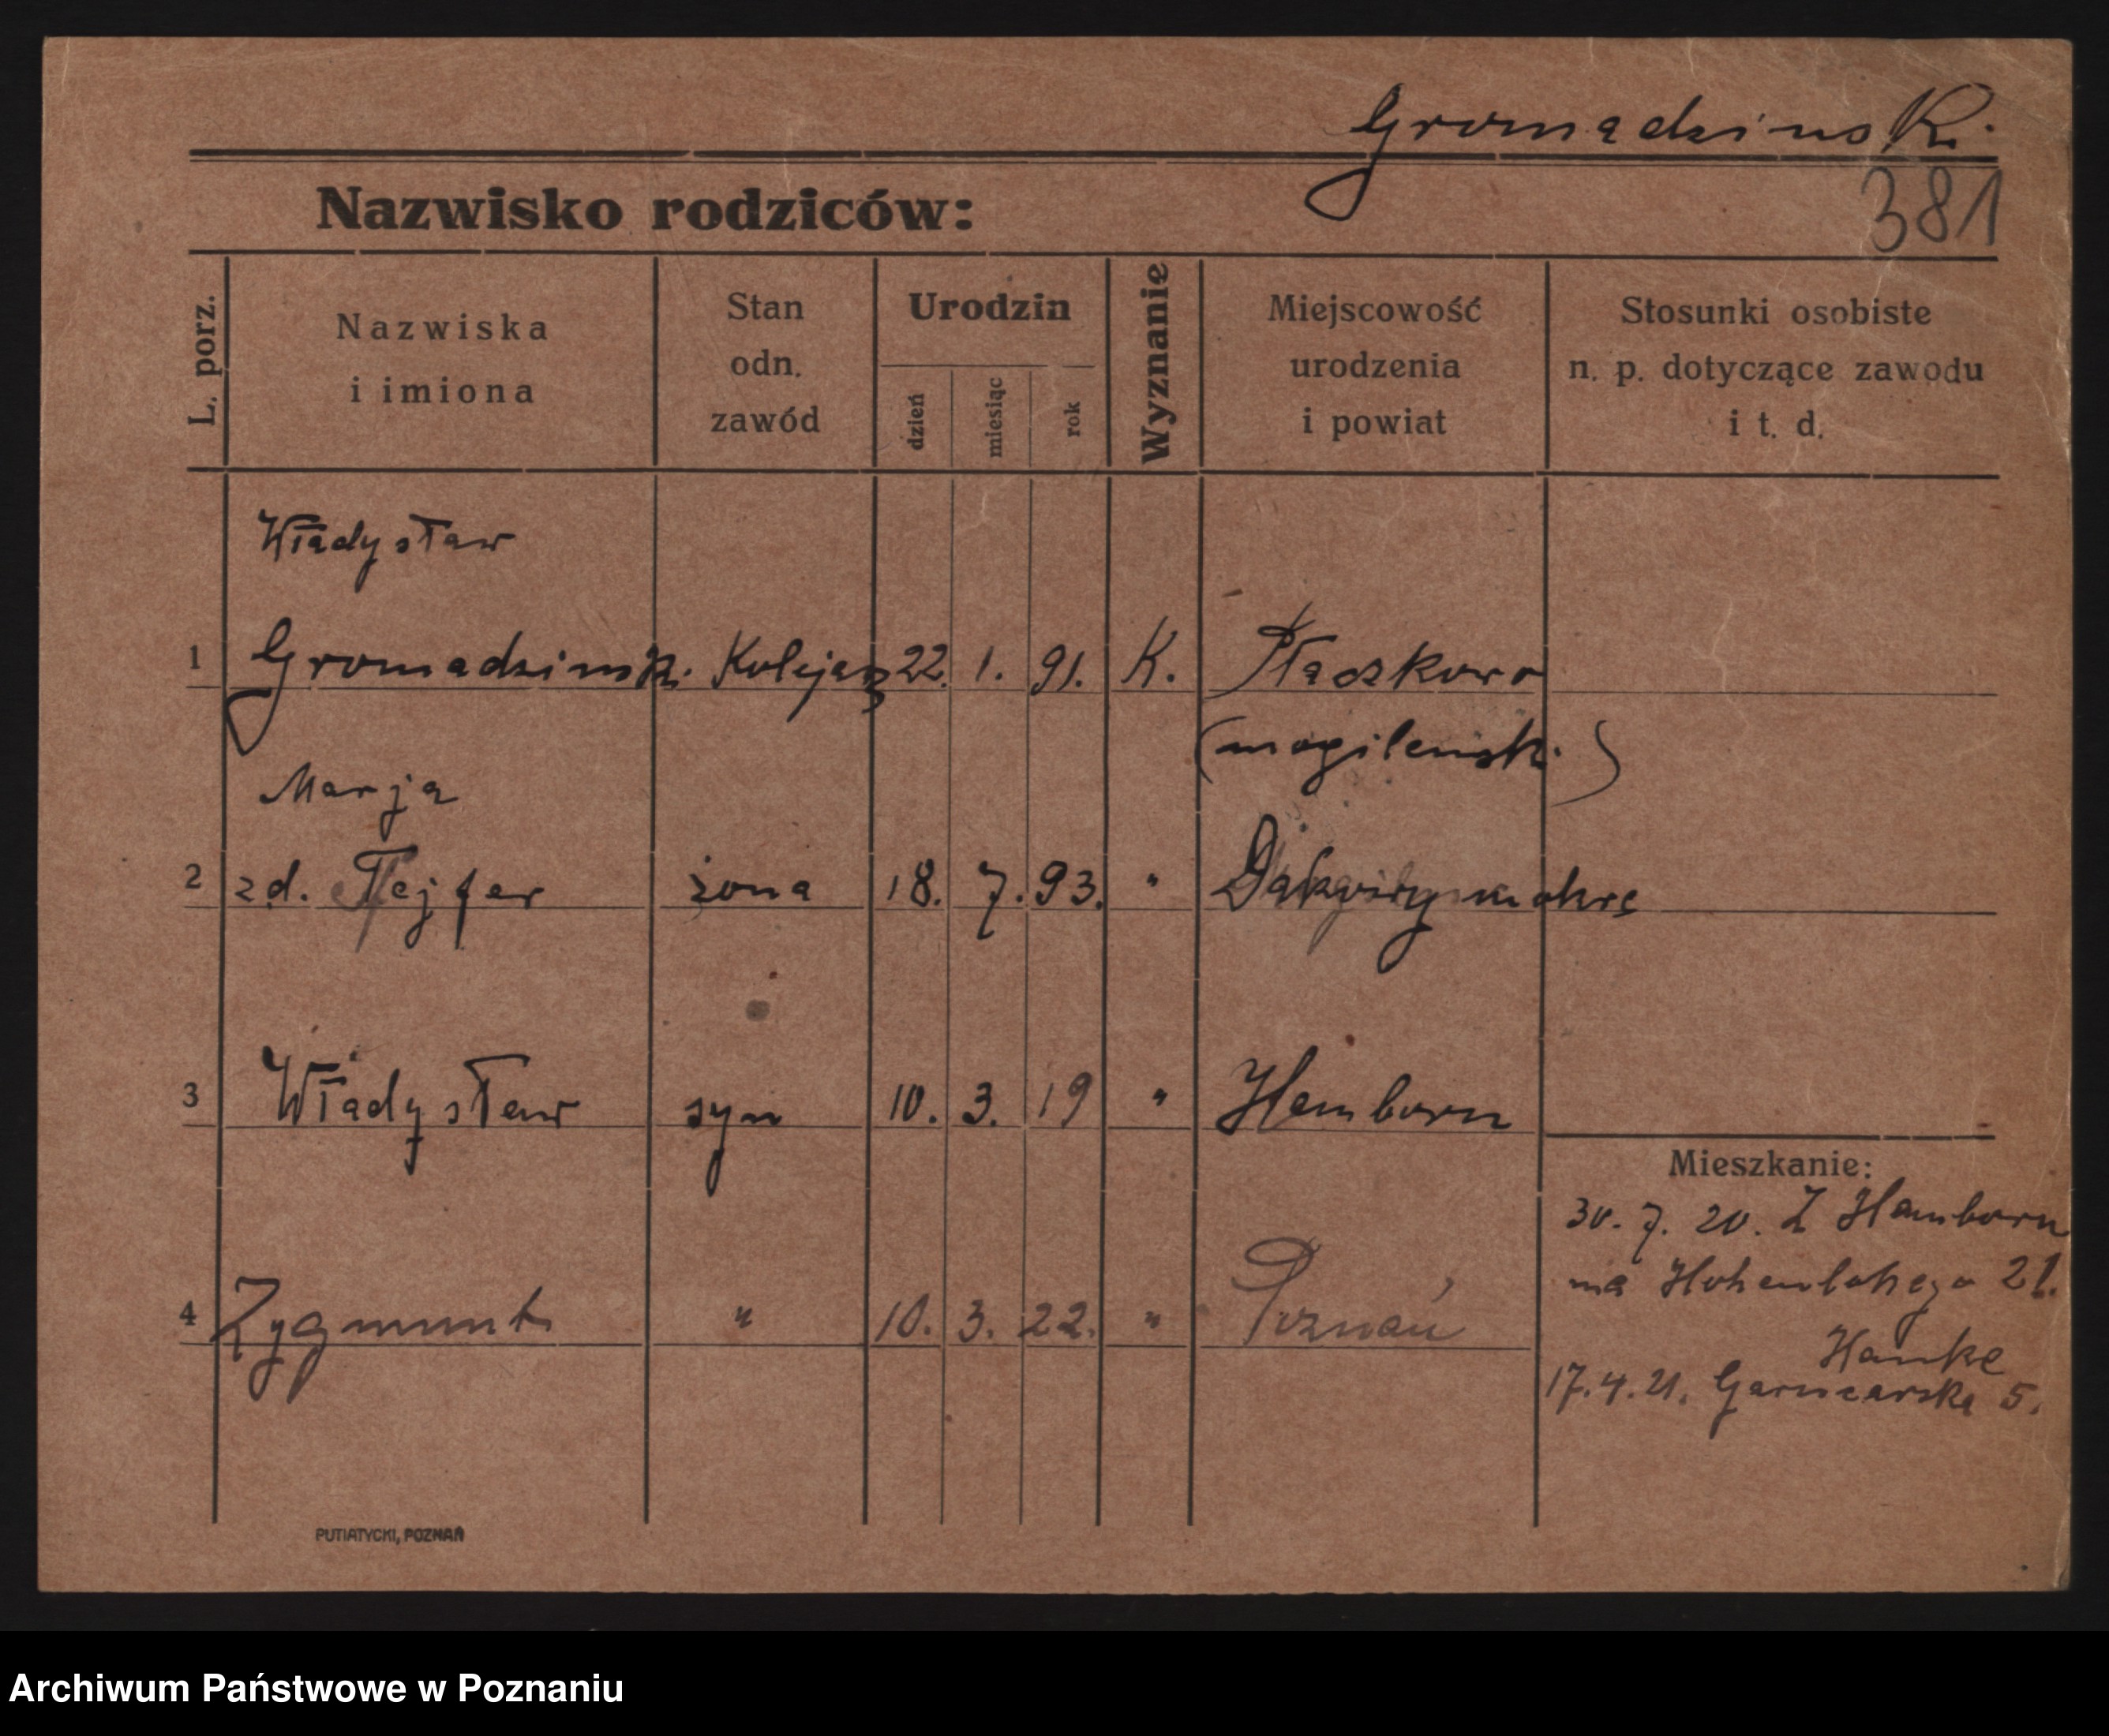 Gromadzinski.
381
Nazwisko rodziców:
L. porz.
Nazwiska
i imiona
Stan
odn.
zawód
Urodzin
dzień
miesiąc
rok
Wyznanie
Miejscowość
urodzenia
i powiat
Stosunki osobiste
n. p. dotyczące zawodu
i t. d.
Władysław
1 Gromadzinsk. Kolejarz 22. 1. 91. K. Płaczkowo
(mogilensk.)
Marja
2 zd. żona 18. 7. 93. " mokre
3 Władysław syn 10. 3. 19 " Hamborn
Mieszkanie:
30. 7. 20. Z Hamborn
na Hohenlohego 21.
4 Zygmunt " 10. 3. 22. " Poznań
Hanke
17.4.21. Garncarska 5.
PUTIATYCKI, POZNAŃ
Archiwum Państwowe w Poznaniu